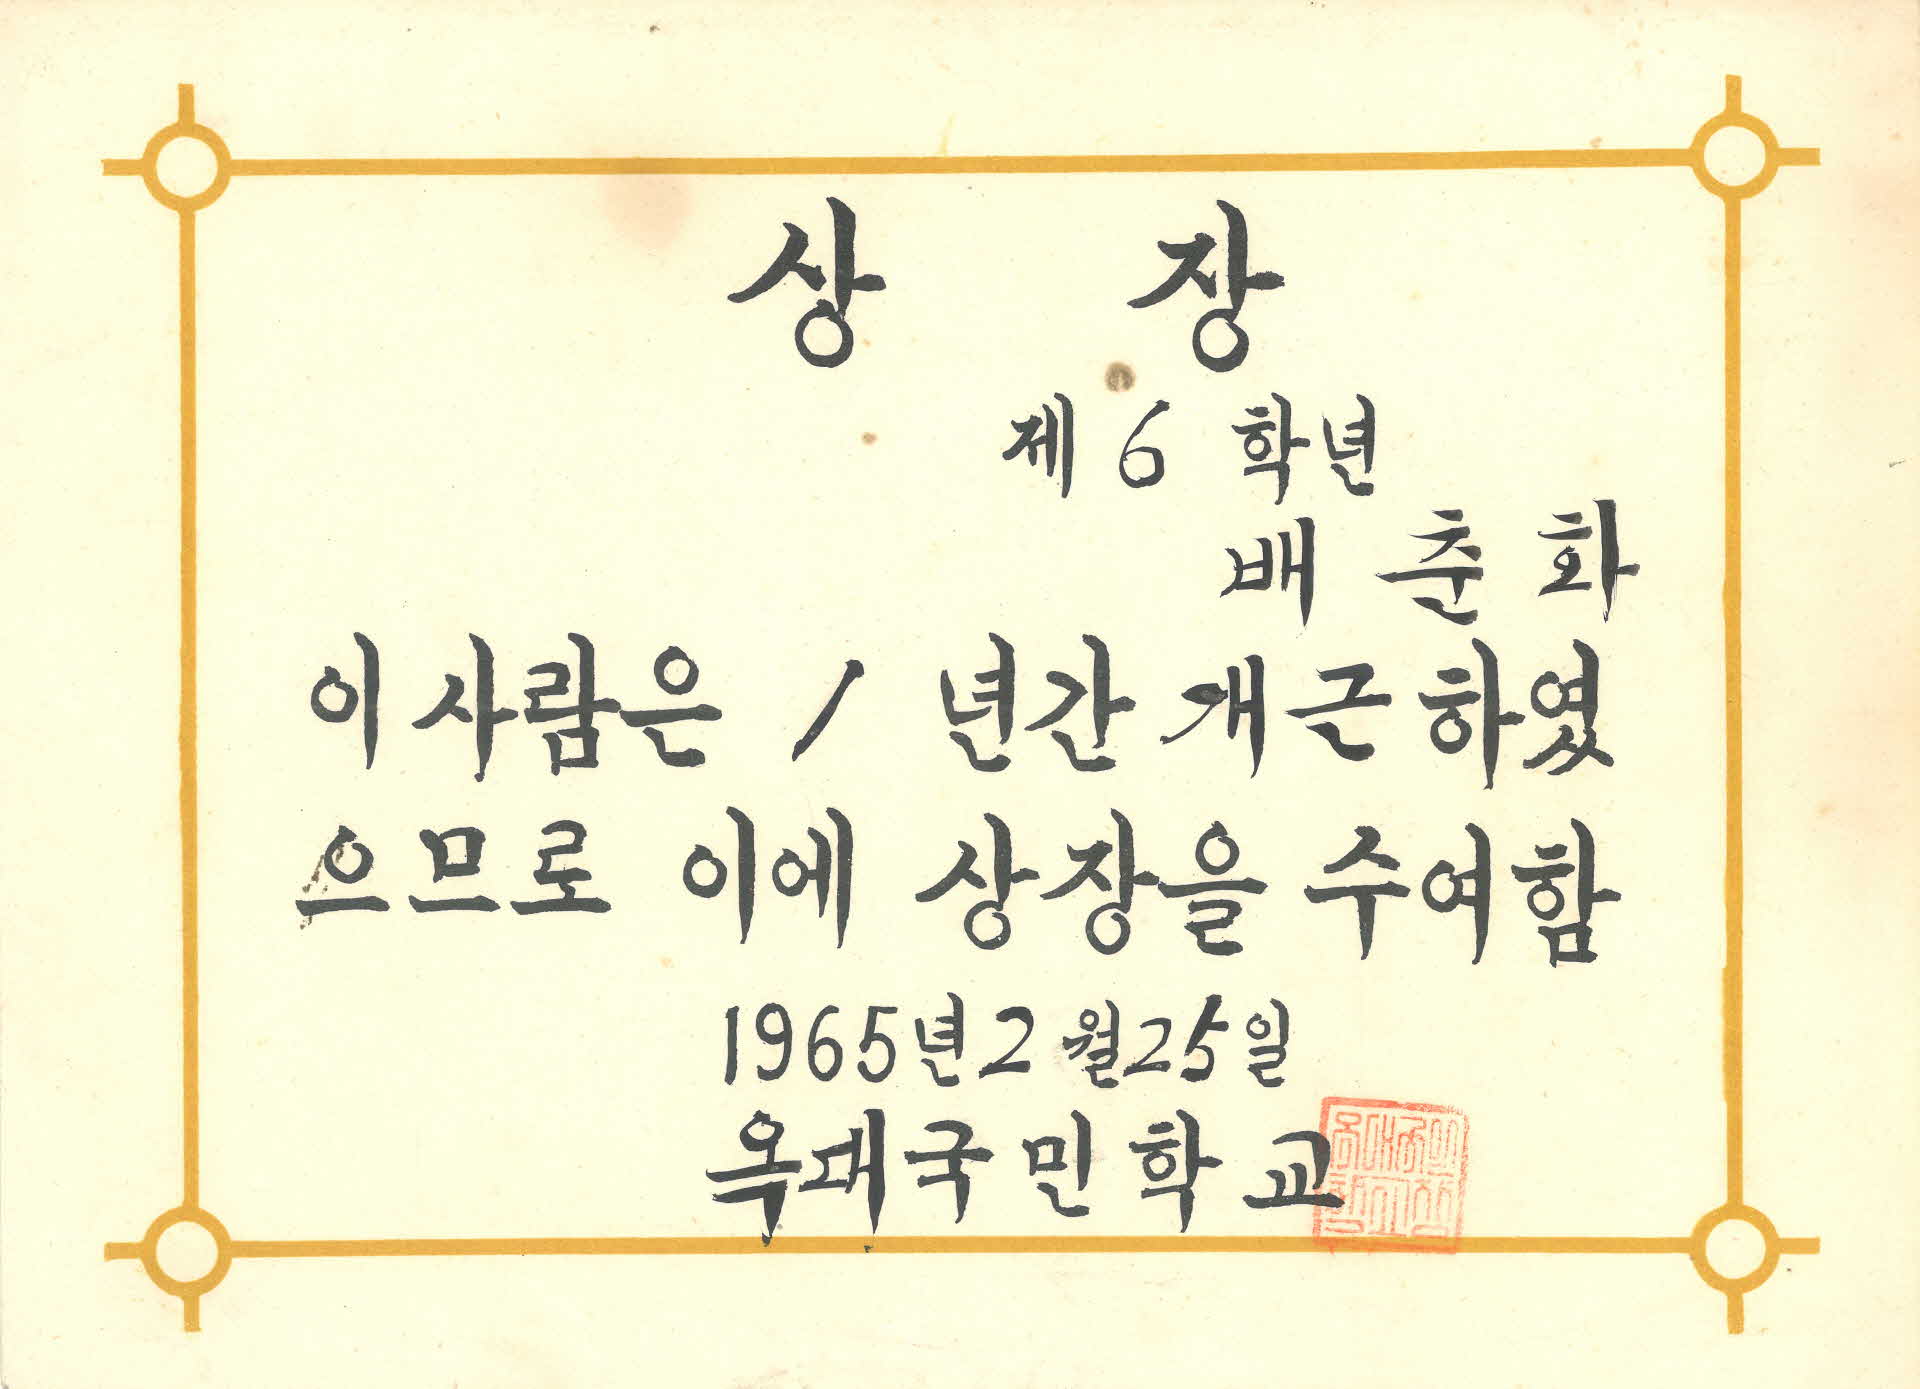 상 장
제 6 학년
배 춘 화
이 사람은 1 년간 개근하였
으므로 이에 상장을 수여함
1965년 2월 25일
옥대국민학교